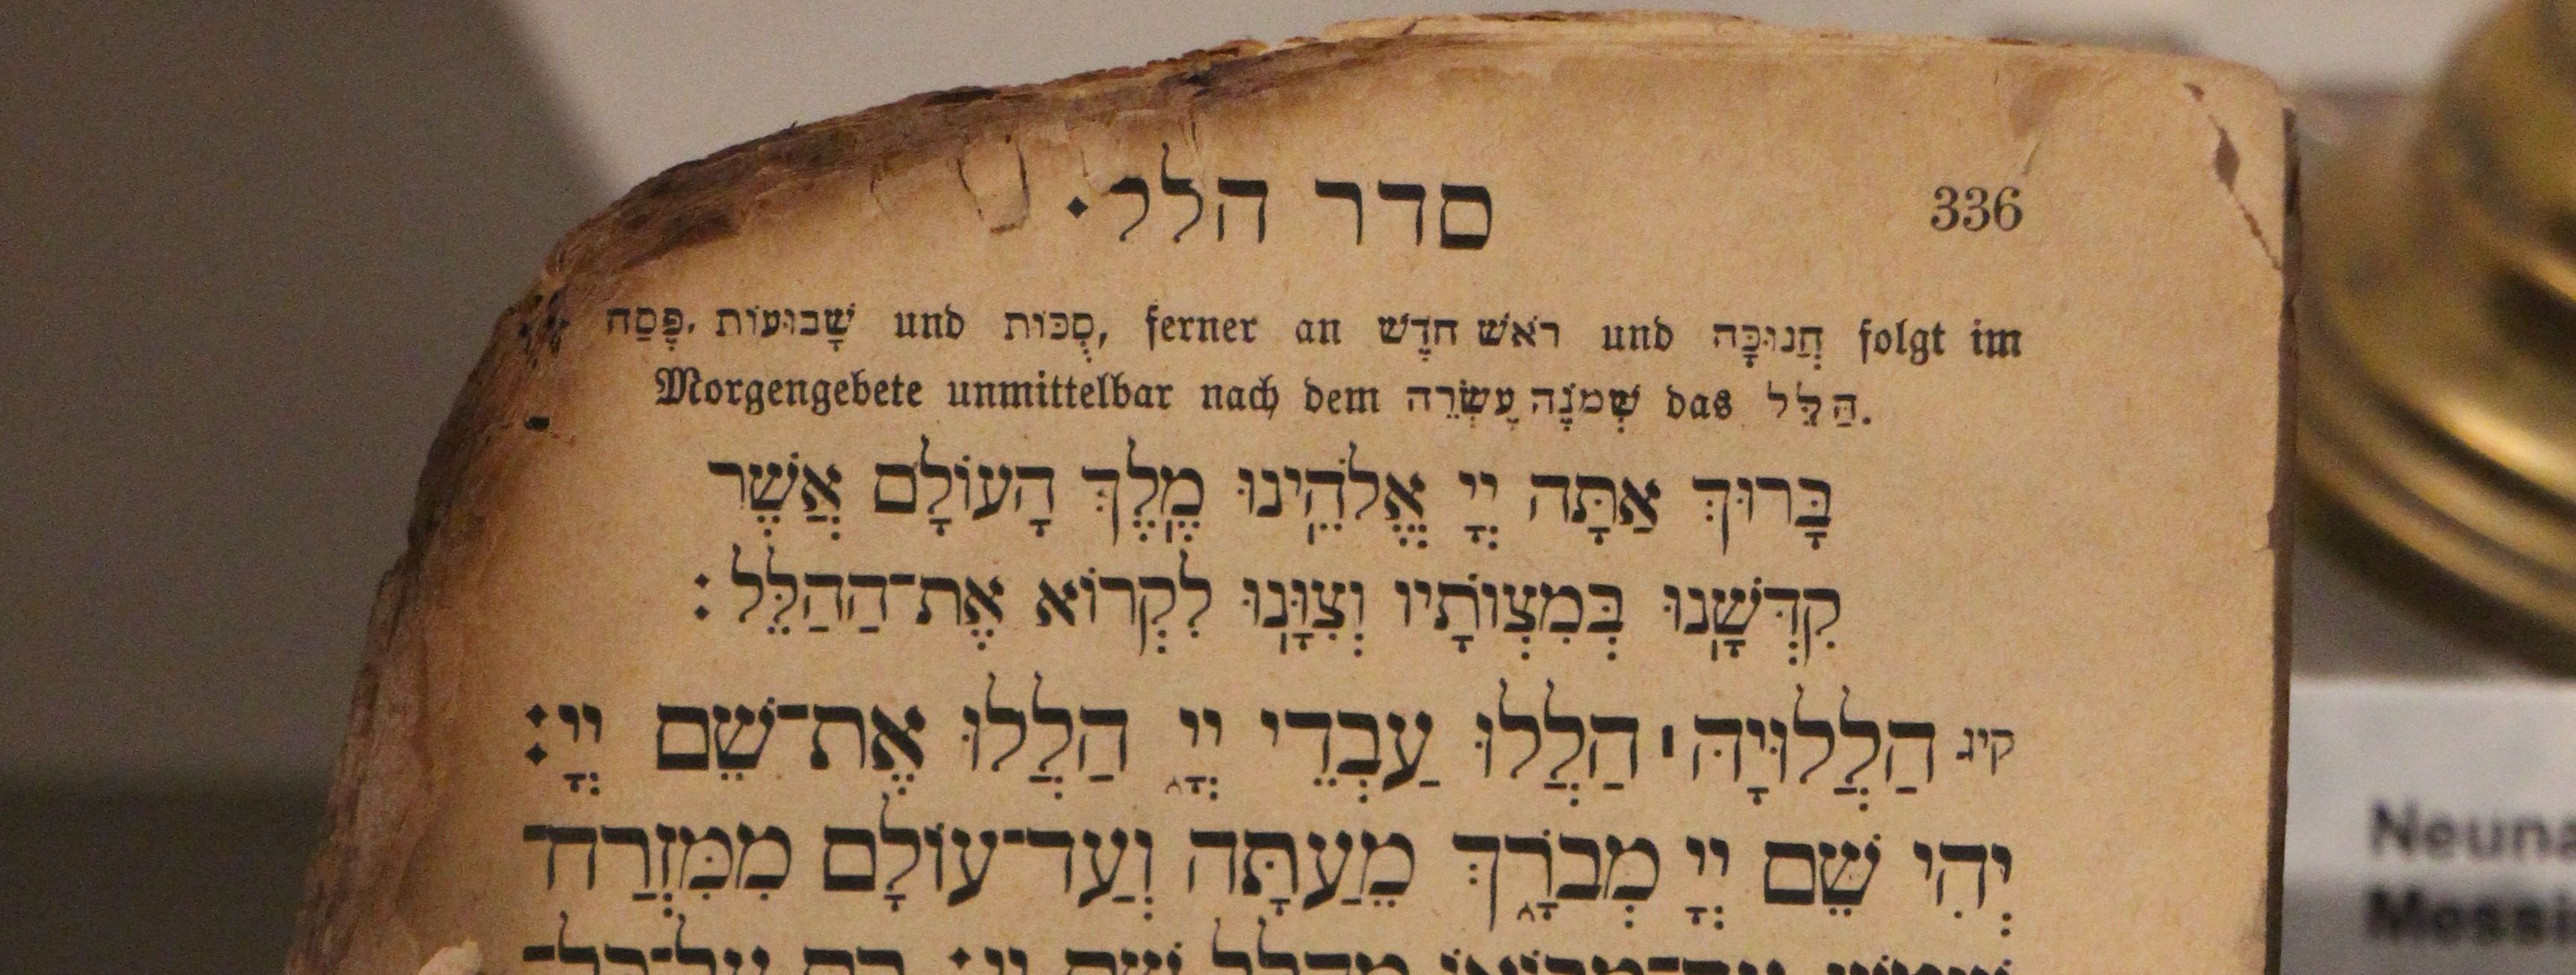 336 סדר הלל·
פֶּסַח, שָׁבוּעוֹת und סֻכּוֹת, ferner an רֹאשׁ חֹדֶשׁ und חֲנוּכָּה folgt im
Morgengebete unmittelbar nach dem שְׁמֹנֶה עֶשְׂרֵה das הַלֵּל.
בָּרוּךְ אַתָּה יְיָ אֱלֹהֵינוּ מֶלֶךְ הָעוֹלָם אֲשֶׁר
קִדְּשָׁנוּ בְּמִצְוֹתָיו וְצִוָּנוּ לִקְרוֹא אֶת־הַהַלֵּל׃
קיג הַלֲלוּיָהּ׀ הַלֲלוּ עַבְדֵי יְיָ הַלֲלוּ אֶת־שֵׁם יְיָ׃
יְהִי שֵׁם יְיָ מְבֹרָךְ מֵעַתָּה וְעַד־עוֹלָם מִמִּזְרַח־
Neuna
Messi